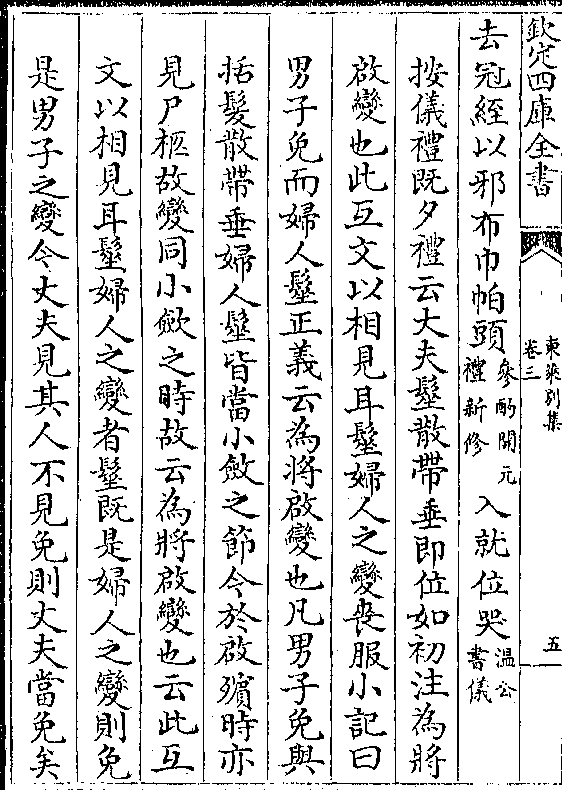 欽定四庫全書
東萊別集
卷三
五
去冠絰以邪布巾帕頭參酌開元禮新修入就位哭溫公書儀
按儀禮既夕禮云大夫髽散帶垂即位如初注為將
啟變也此互文以相見耳髽婦人之變喪服小記曰
男子免而婦人髽正義云為將啟變也凡男子免與
括髮散帶垂婦人髽皆當小斂之節今於啟殯時亦
見尸柩故變同小斂之時故云為將啟變也云此互
文以相見耳髽婦人之變者髽既是婦人之變則免
是男子之變今丈夫見其人不見免則丈夫當免矣